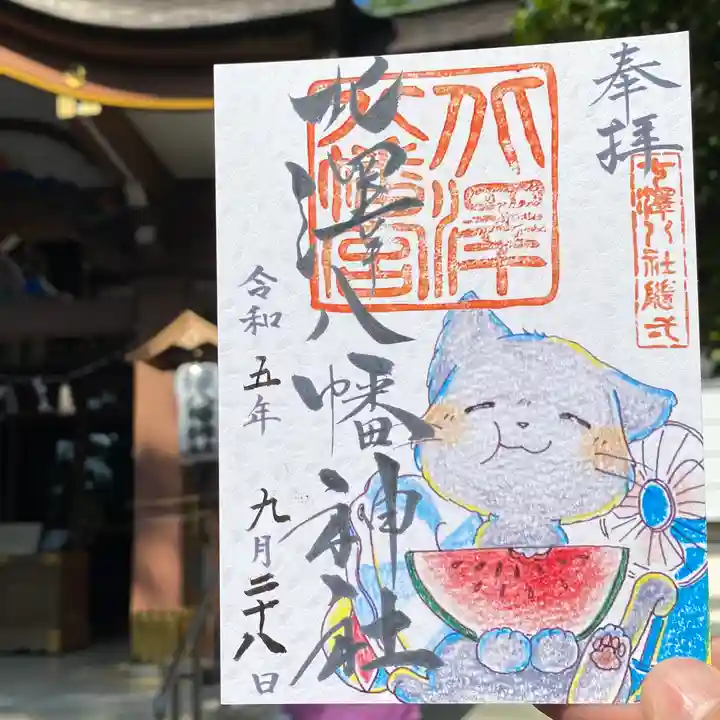 奉拝
北澤八幡神社
令和五年
九月二十八日
北澤
八幡宮